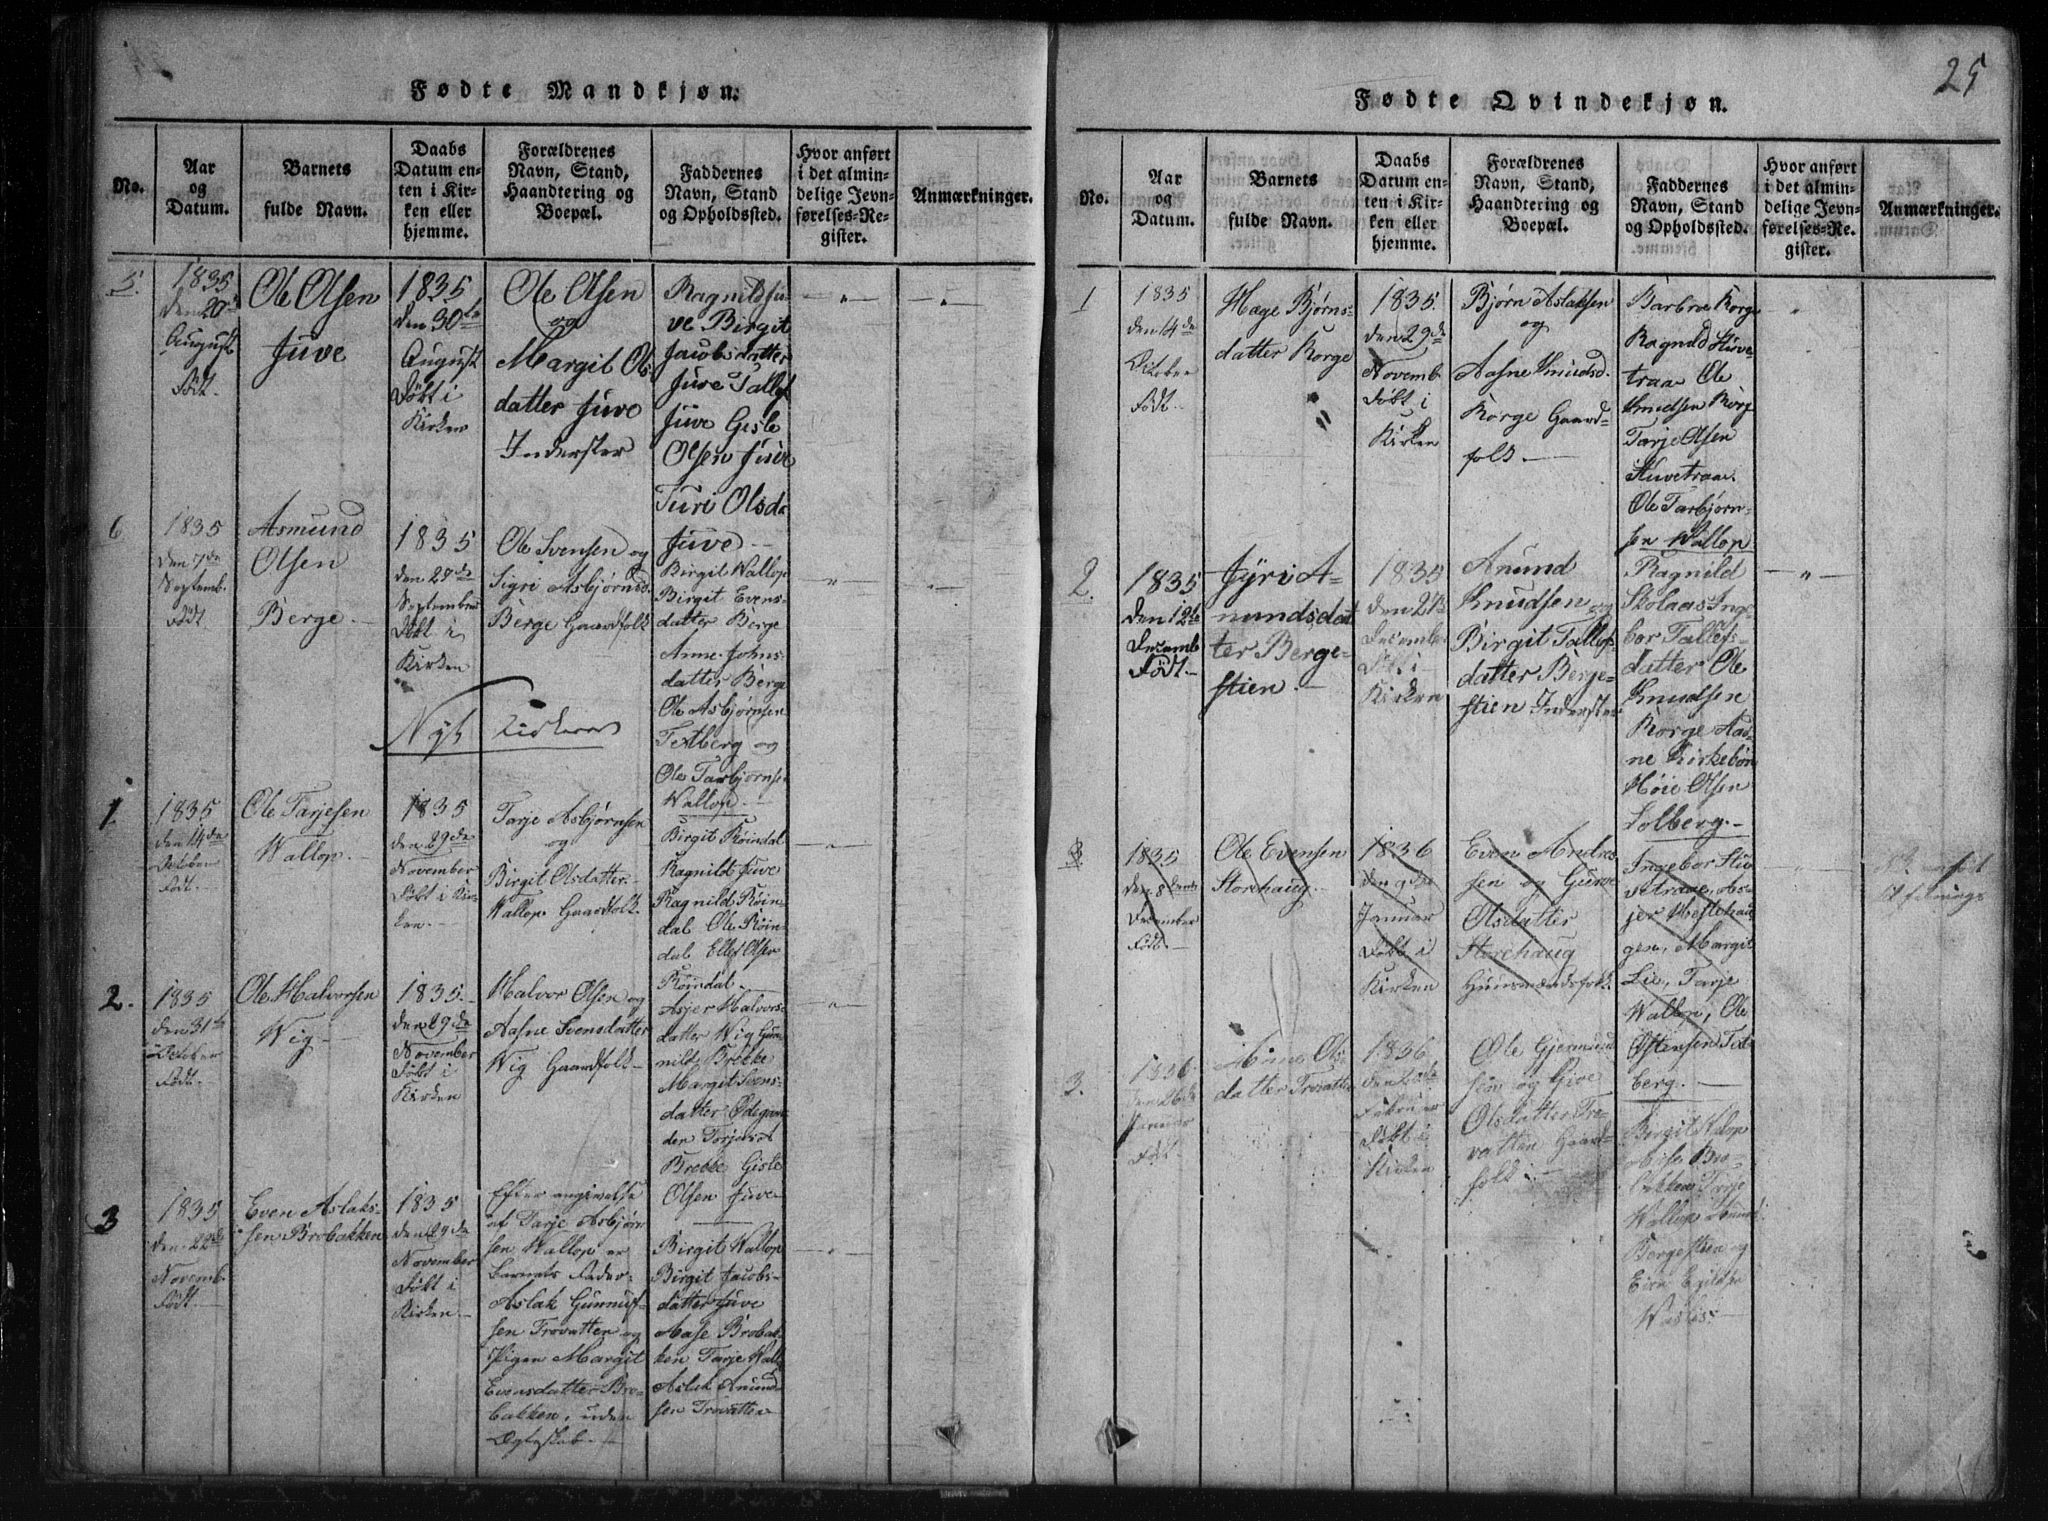 Fødte Mandkjøn.
No.
Aar
og
Datum.
Barnets
fulde Navn.
Daabs
Datum en-
ten i Kir-
ken eller
hjemme.
Forældrenes
Navn, Stand,
Haandtering og
Boepæl.
Faddernes
Navn, Stand
og Opholdssted.
Hvor anført
i det almin-
delige Jevn-
førelses-Re-
gister.
Anmærkninger.
5.
1835
den 20de
August
Født.
Ole Olsen
Juve
1835
den 30te
August
Døbt i
Kirken
Ole Olsen
og
Margit Ols
datter Juve
Inderster
Ragnild Ju-
ve Birgit
Jacobsdatter
Juve Tallef
Juve Gisle
Olsen Juve
Turi Olsda
Juve
6
1835
den 7de
Septemb.
Født
Asmund
Olsen
Berge.
1835
den 27de
September
Døbt i
Kirken
Ole Svensen og
Sigri Asbjørnsd
Berge Gaardfolk
Birgit Wallop
Birgit Evens-
datter Berge
Anne Johns-
datter Berge
Ole Asbjørnsen
Tetberg og
Ole Tarbjørnsen
Wallop.
Nyt Kirkeaar
1
1835
den 14de
October
Født.
Ole Tarjesen
Wallop.
1835
den 29de
November
Døbt i Kir-
ken.
Tarje Asbjørnsen
og
Birgit Olsdatter
Wallop Gaardfolk.
Birgit Røindal
Ragnild Juve
Ragnild Røin-
dal Ole Røin-
dal Ellef Olsen
Røindal.
2.
1835
den 31te
October
Født.
Ole Halvorsen
Wig
1835.
den 29de
November
Døbt i
Kirken
Halvor Olsen og
Aasne Svensdatter
Wig Gaardfolk
Asjer Halvors-
datter Wig Gun-
nild Brekke
Margit Svens-
datter Ødegaar
den Torjus
Brekke Gisle
Olsen Juve
3
1835
den 22de
Novemb.
Født.
Even Aslak-
sen Brobakken
1835
den 29de
November
Døbt i
Kirken
Efter angivelse
af Tarje Asbjørn
sen Wallop er
barnets Fader
Aslak Gunnuf-
sen Trovatten og
Pigen Margit
Evensdatter Bro-
bakken, uden
Ægteskab.
Birgit Wallop
Birgit Jacobs-
datter Juve
Aase Brobak-
ken Tarje Wall
Aslak Anund-
sen Trovatten
25
Fødte Qvindekjøn.
No.
Aar
og
Datum.
Barnets
fulde Navn.
Daabs
Datum en-
ten i Kir-
ken eller
hjemme.
Forældrenes
Navn, Stand,
Haandtering og
Boepæl.
Faddernes
Navn, Stand
og Opholdssted.
Hvor anført
i det almin-
delige Jevn-
førelses-Re-
gister.
Anmærkninger.
1
1835
den 14de
October
Født.
Hæge Bjørns-
datter Rorge
1835.
den 29de
Novemb.
Døbt i
Kirken
Bjørn Aslaksen
og
Aasne Knudsd.
Rorge Gaard-
folk.
Barbroe Rorge
Ragnild Stuve-
traae Ole
Knudsen Rorg
Tarje Olsen
Stuvetraae.
Ole Tarbjørn-
sen Wallop
2.
1835
den 12te
Decemb
Født.
Jyri A-
nundsdat
ter Berge-
stien.
1835
den 27de
December
Døbt i
Kirken
Anund
Knudsen og
Birgit Tallef-
datter Berge-
stien Inderster
Ragnild
Skolaas Inge
bor Tallefs-
datter Ole
Knudsen
Rorge Aas-
ne Kirkebøn
Høie Olsen
Solberg.
1835
den 8de
December
Født.
Ole Evensen
Storehaug.
1836
den 9de
Januar
Døbt i
Kirken
Even Andres
sen og Gunne
Olsdatter
Storehaug
Huusmandsfolk.
Ingebor Stu-
vetraae, As-
jer Hestehau-
gen, Margit
Lie, Tarje
Wallop, Ole
Østensen Tet-
berg.
3.
1836
den 26de
Januar
Født.
datter Trovatten
1836
Februar
Døbt i
Kirken
Ole Gjermund
sen og Give
Olsdatter Tro-
vatten Gaard-
folk.
Birgit Wallop
Aase Bro-
bakken Tarje
Wallop Anund
Bergestien og